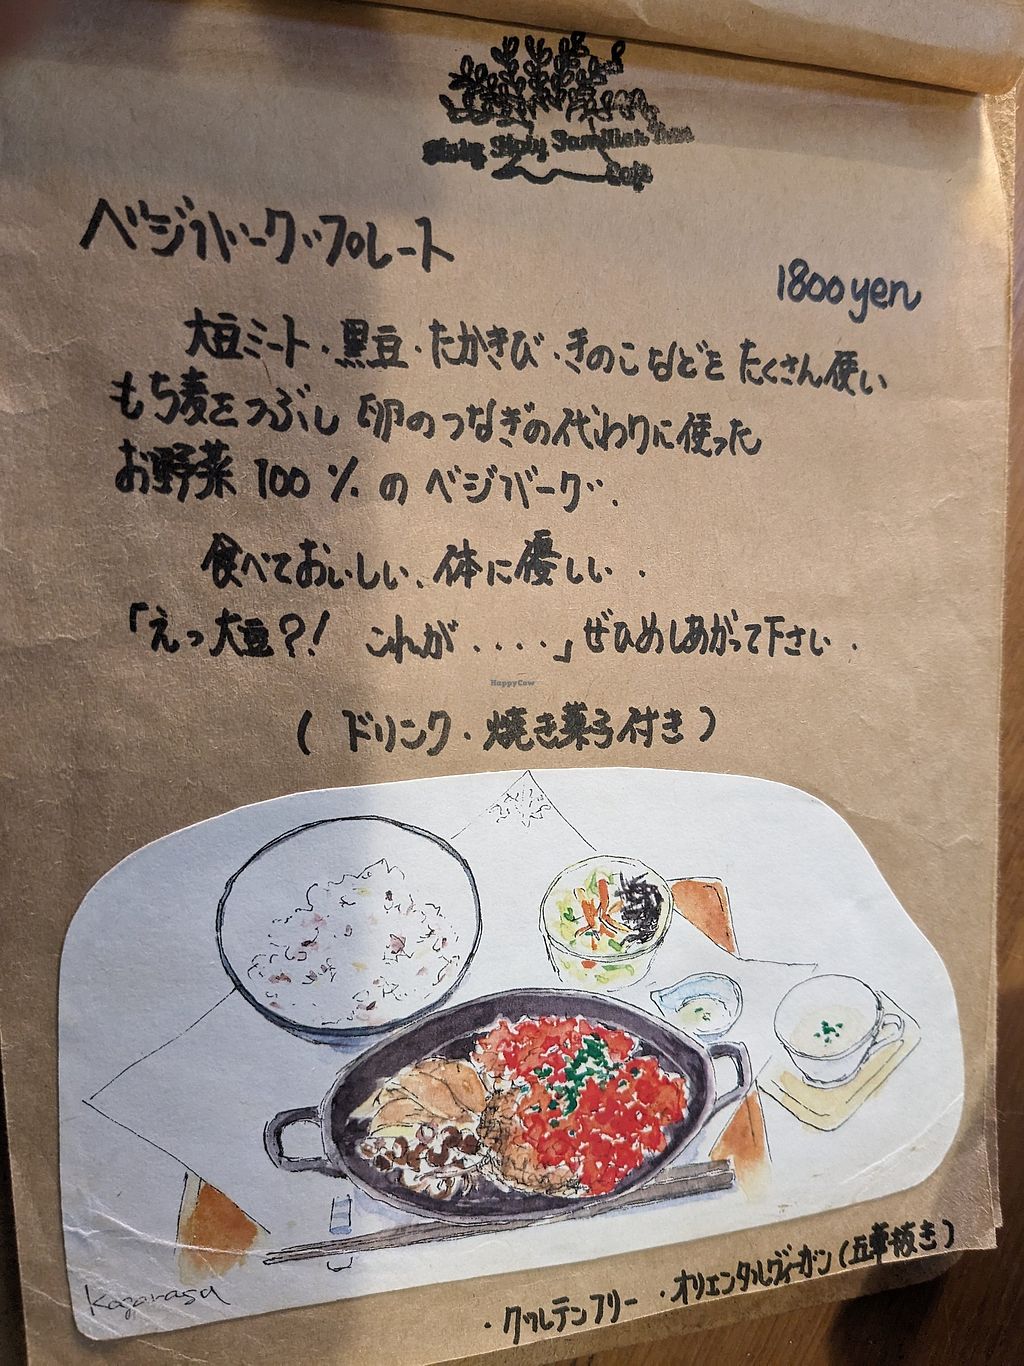 Holy Holy Familiar Tree
Cafe
ベジバーグ・プレート
1800yen
大豆ミート・黒豆・たかきび・きのこなどをたくさん使い
もち麦をつぶし 卵のつなぎの代わりに使った
お野菜 100 % の ベジバーグ.
食べておいしい、体に優しい .
「えっ大豆?! これが ・・・・」ぜひめしあがって下さい .
HappyCow
( ドリンク・焼き菓子付き )
・グルテンフリー ・オリエンタルヴィーガン (五葷抜き)